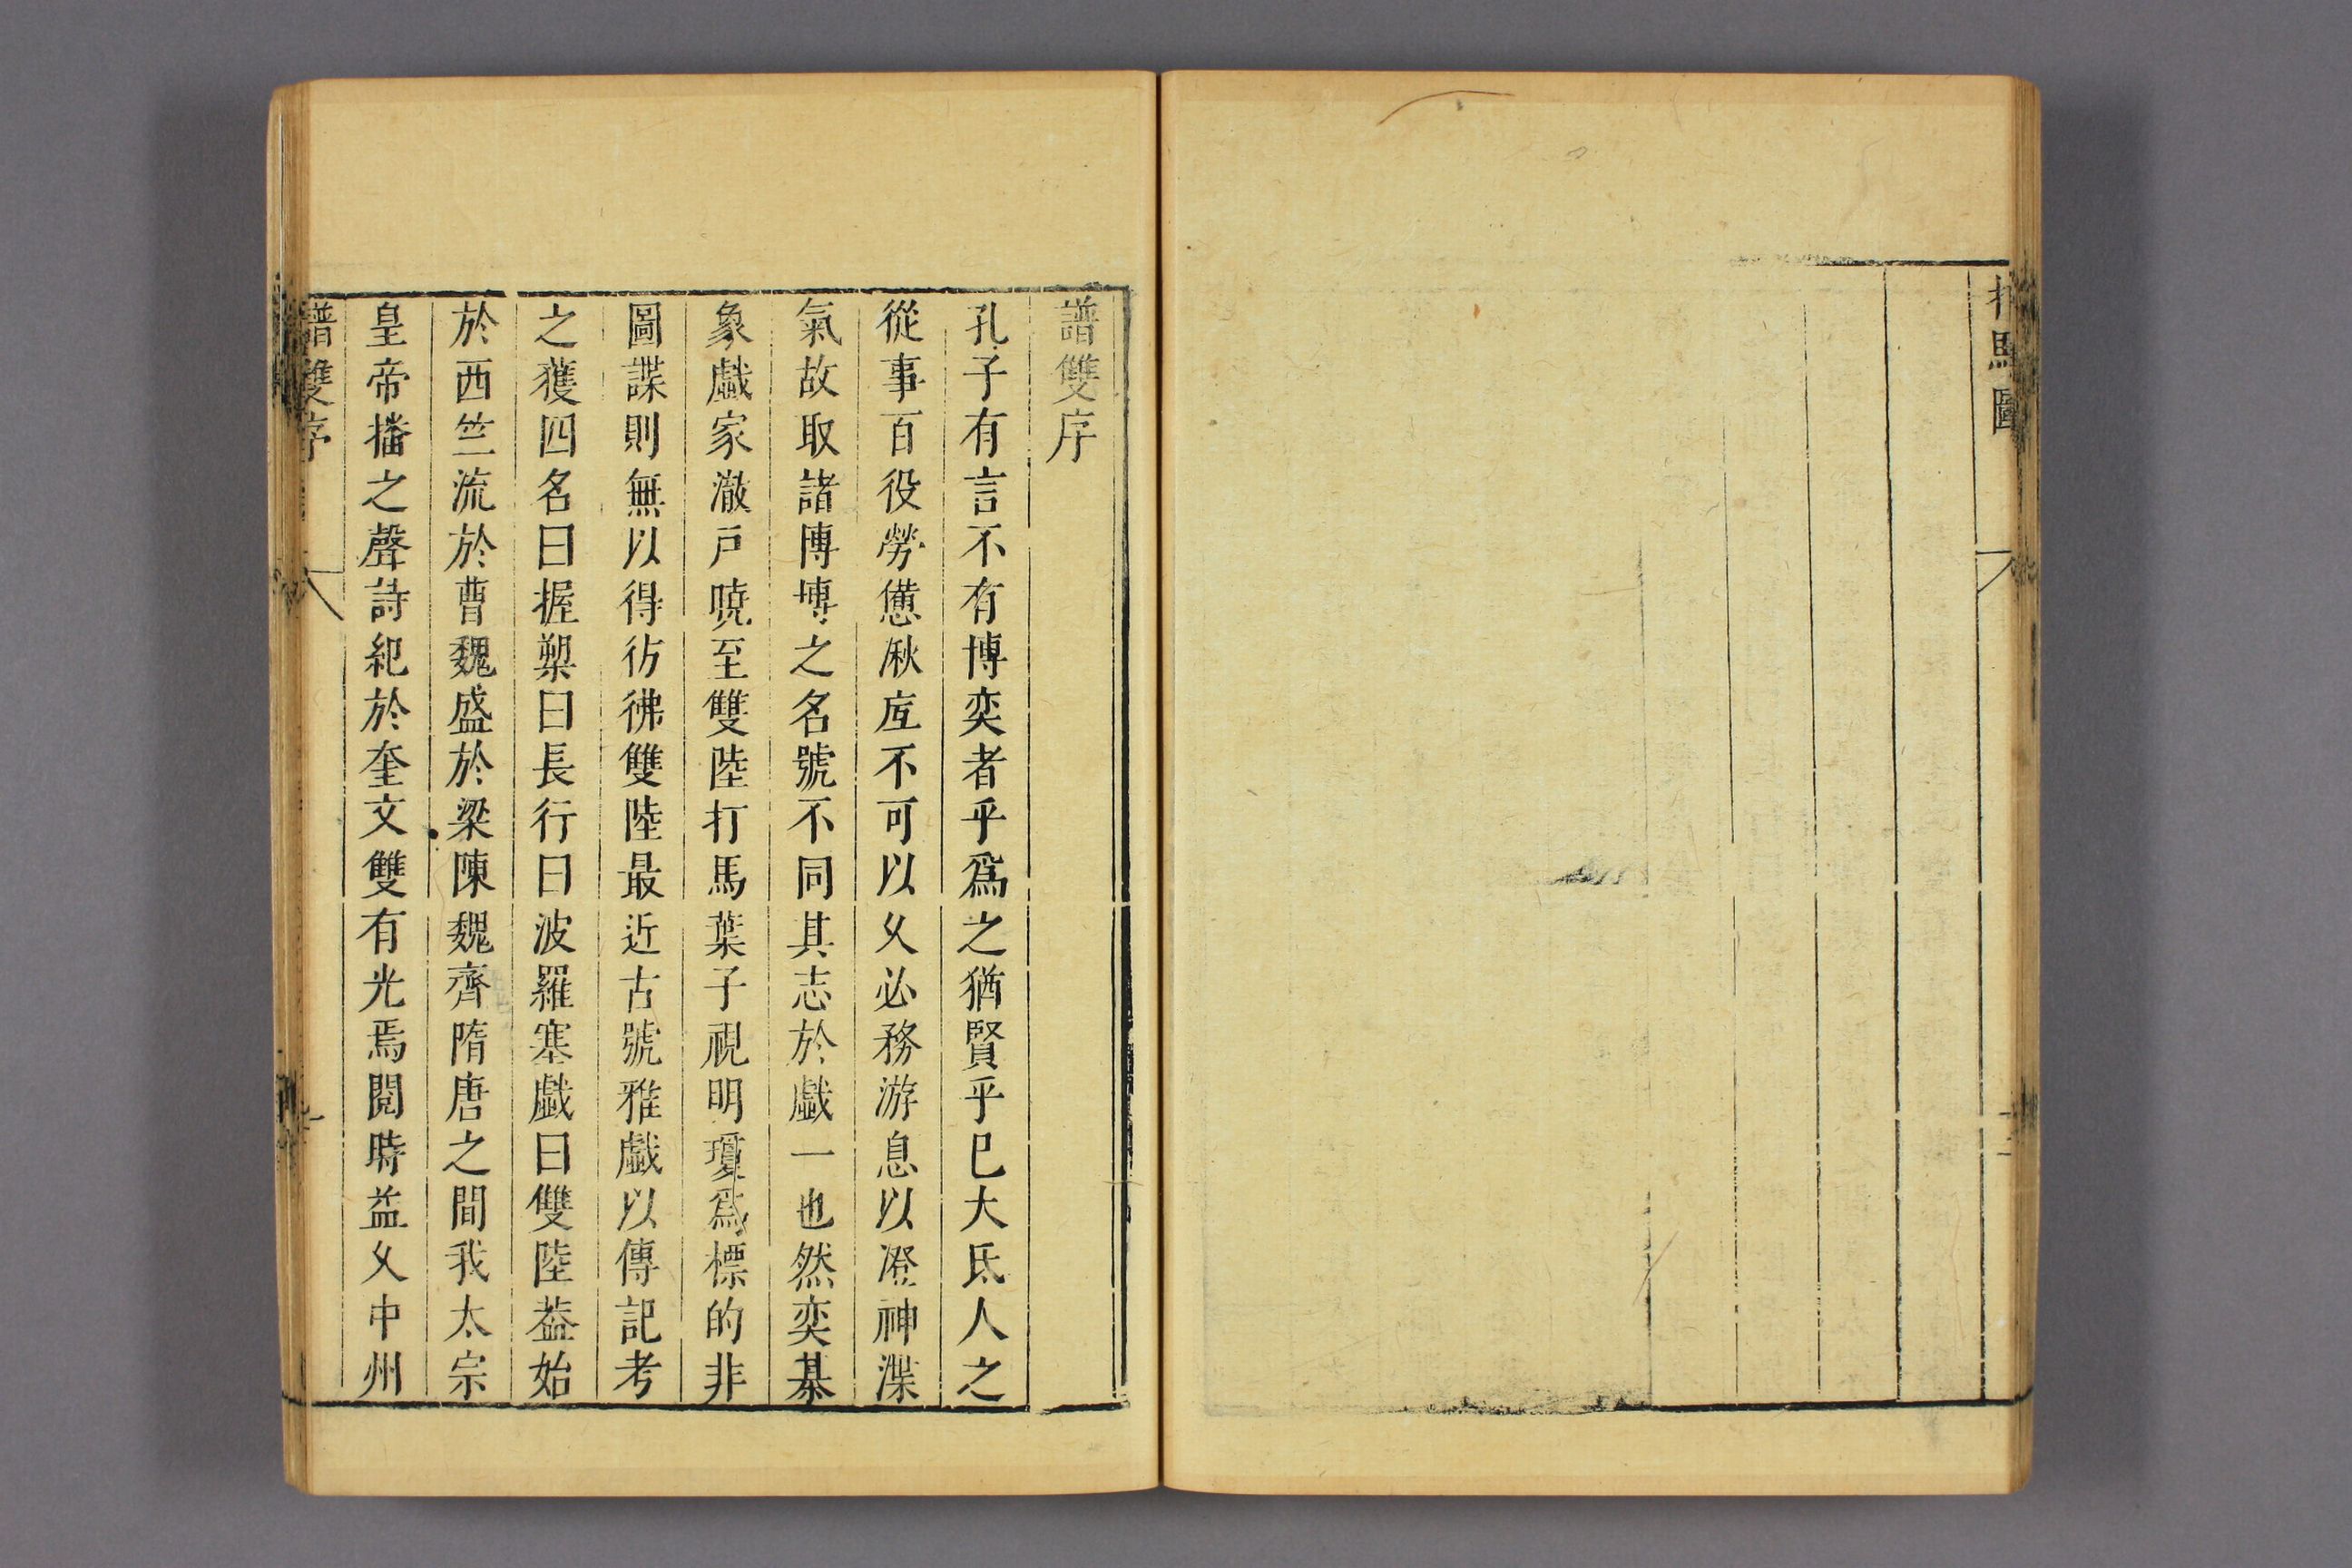 打馬圖
譜雙序
孔子有言不有博奕者乎爲之猶賢乎已大氐人之
從事百役勞憊湫底不可以久必務游息以澄神渫
氣故取諸博博之名號不同其志於戲一也然奕棊
象戲家澈戸曉至雙陸打馬葉子視明瓊爲標的非
圖諜則無以得彷彿雙陸最近古號雅戲以傳記考
之獲四名曰握槊曰長行曰波羅塞戲曰雙陸葢始
於西竺流於曹魏盛於梁陳魏齊隋唐之間我太宗
皇帝播之聲詩紀於奎文雙有光焉閱時益久中州
譜雙序